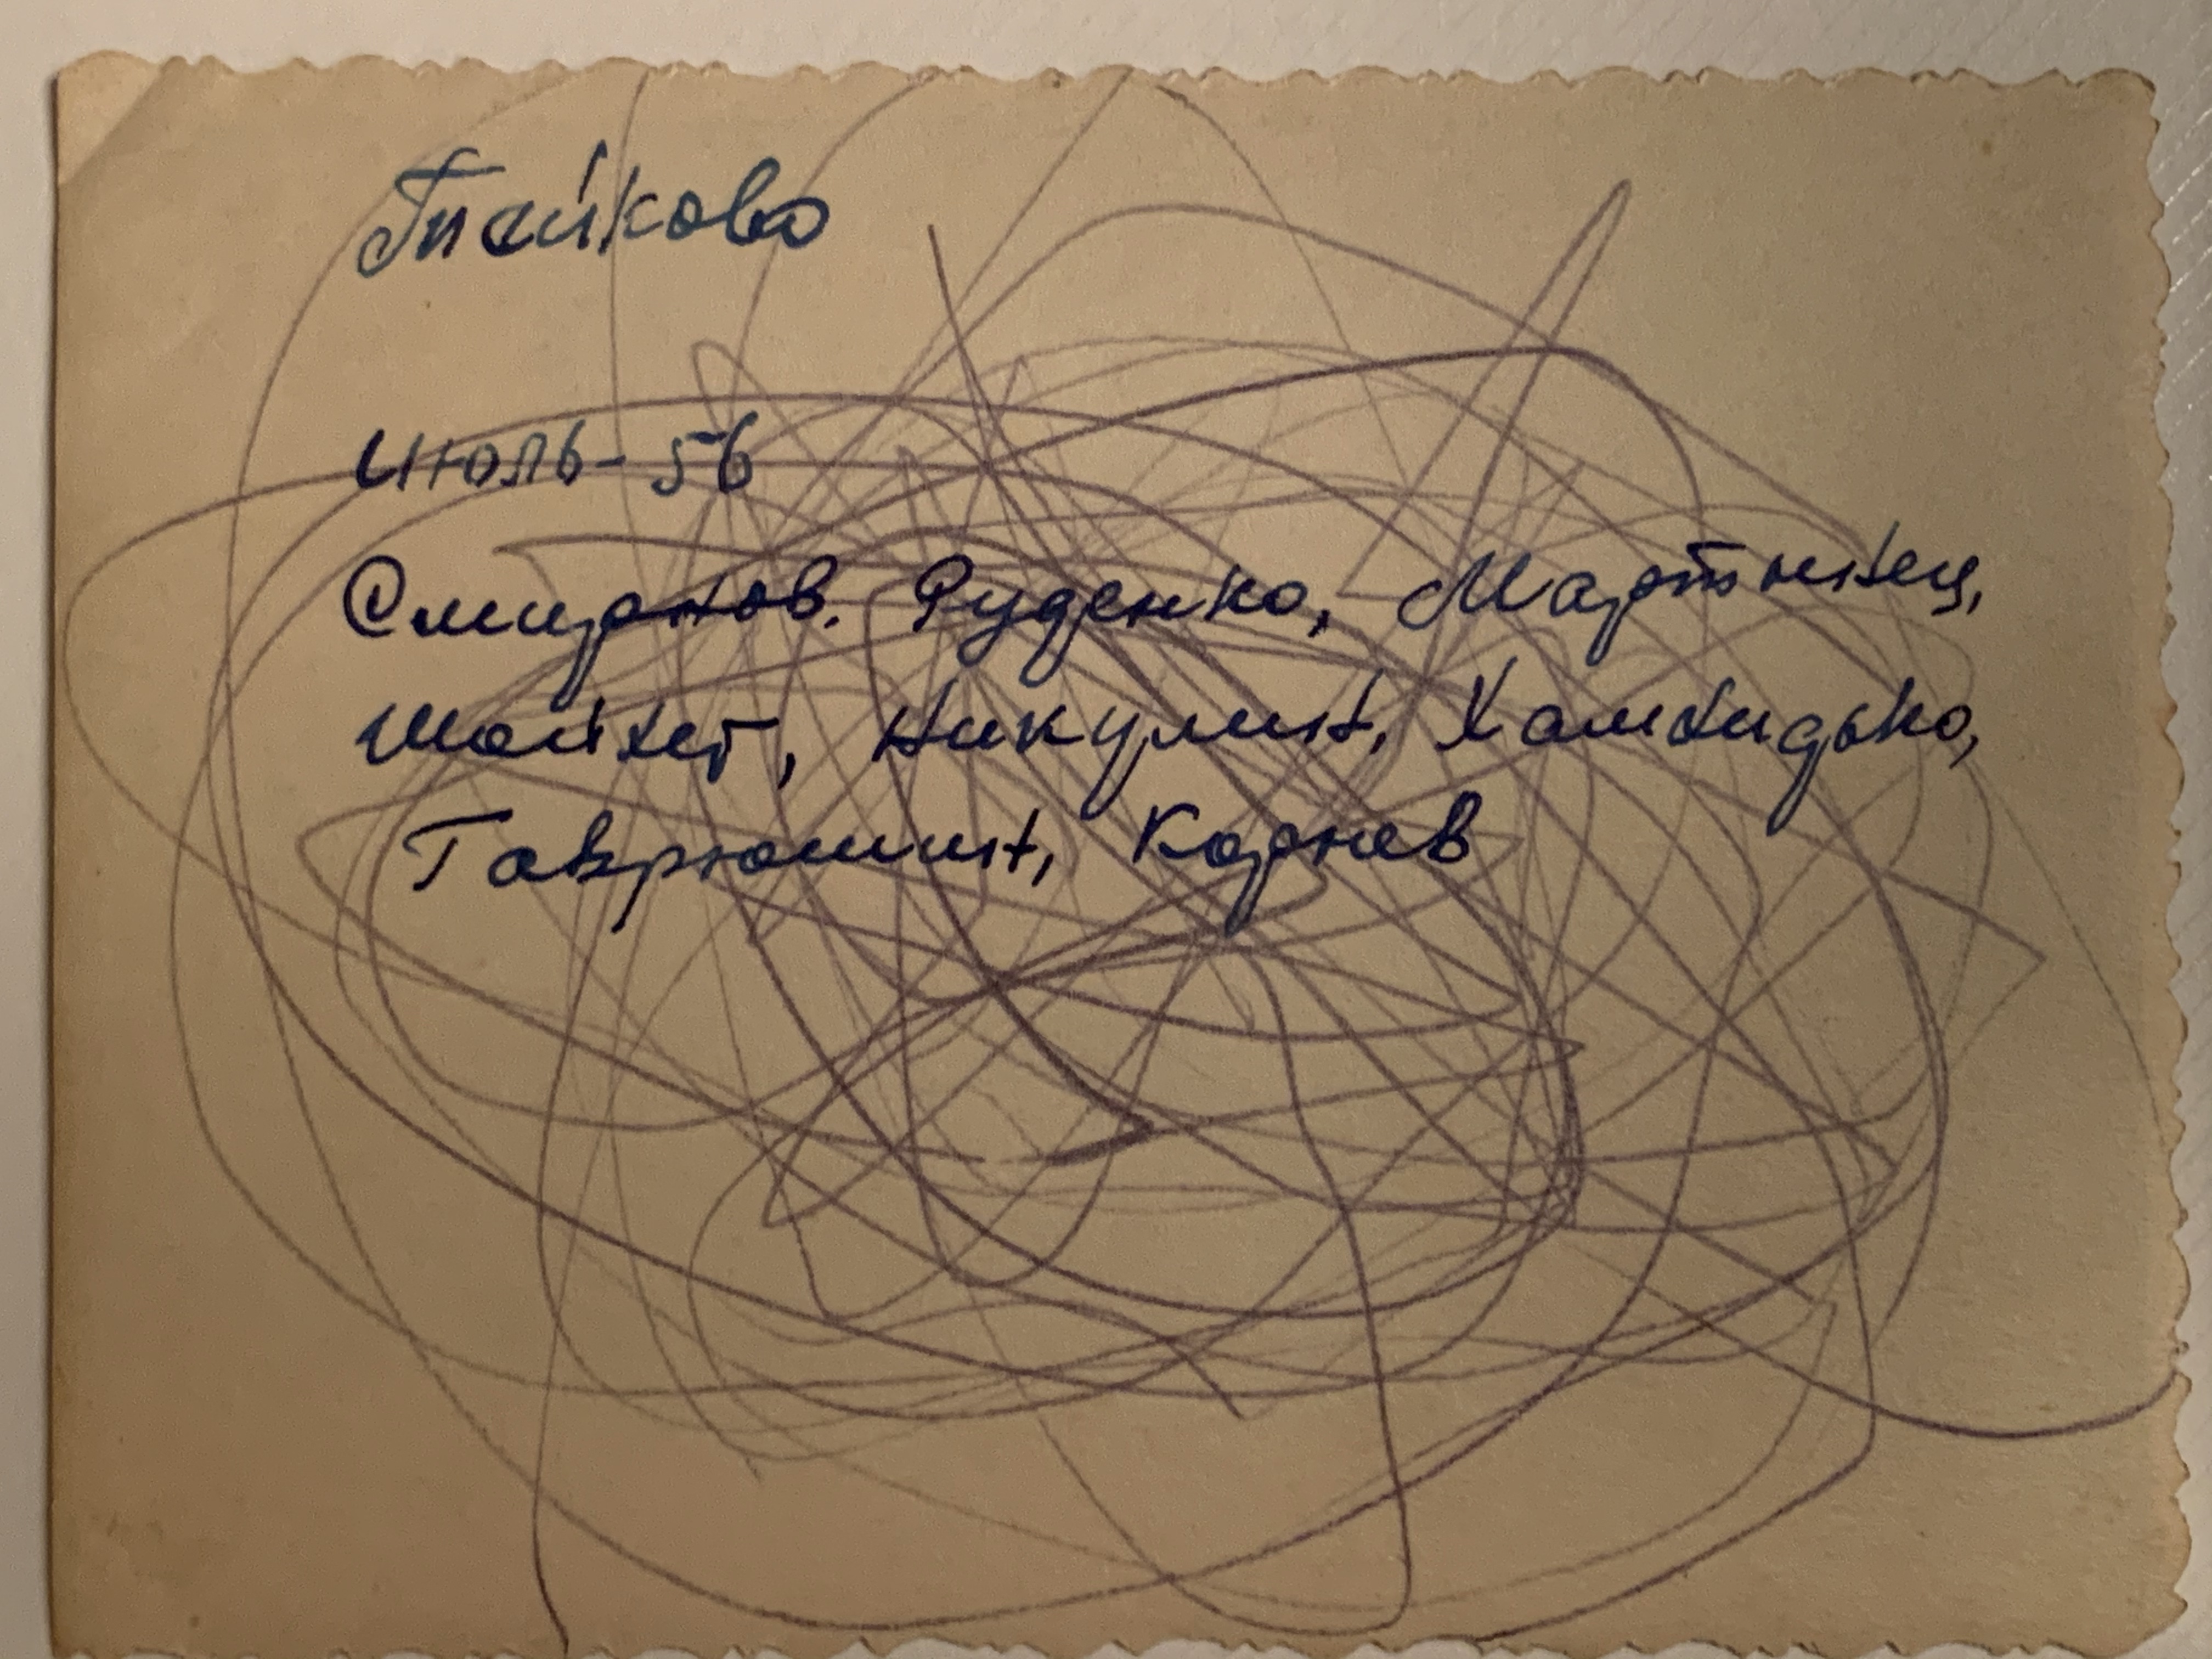 Тейково
июль - 56
Смирнов. Руденко, Мартынец,
Шойхет, Никулин, Хамхидько,
Гаврюшин, Корнев